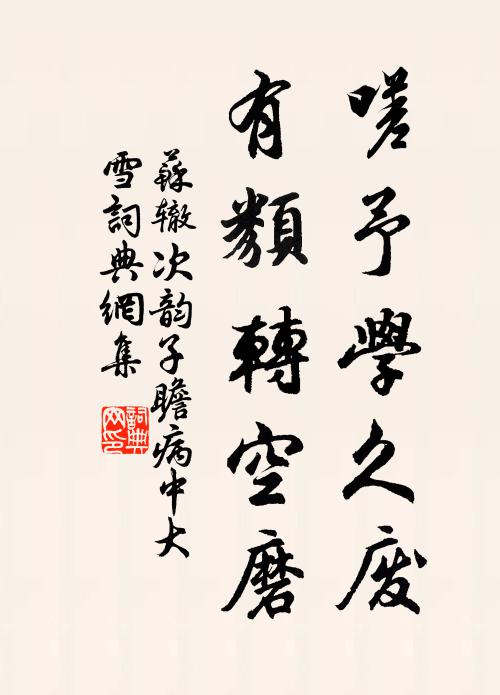 嗟予學久废
有類轉空磨
蘇辙次韵子瞻病中大
雪詞典網集
詞典网印